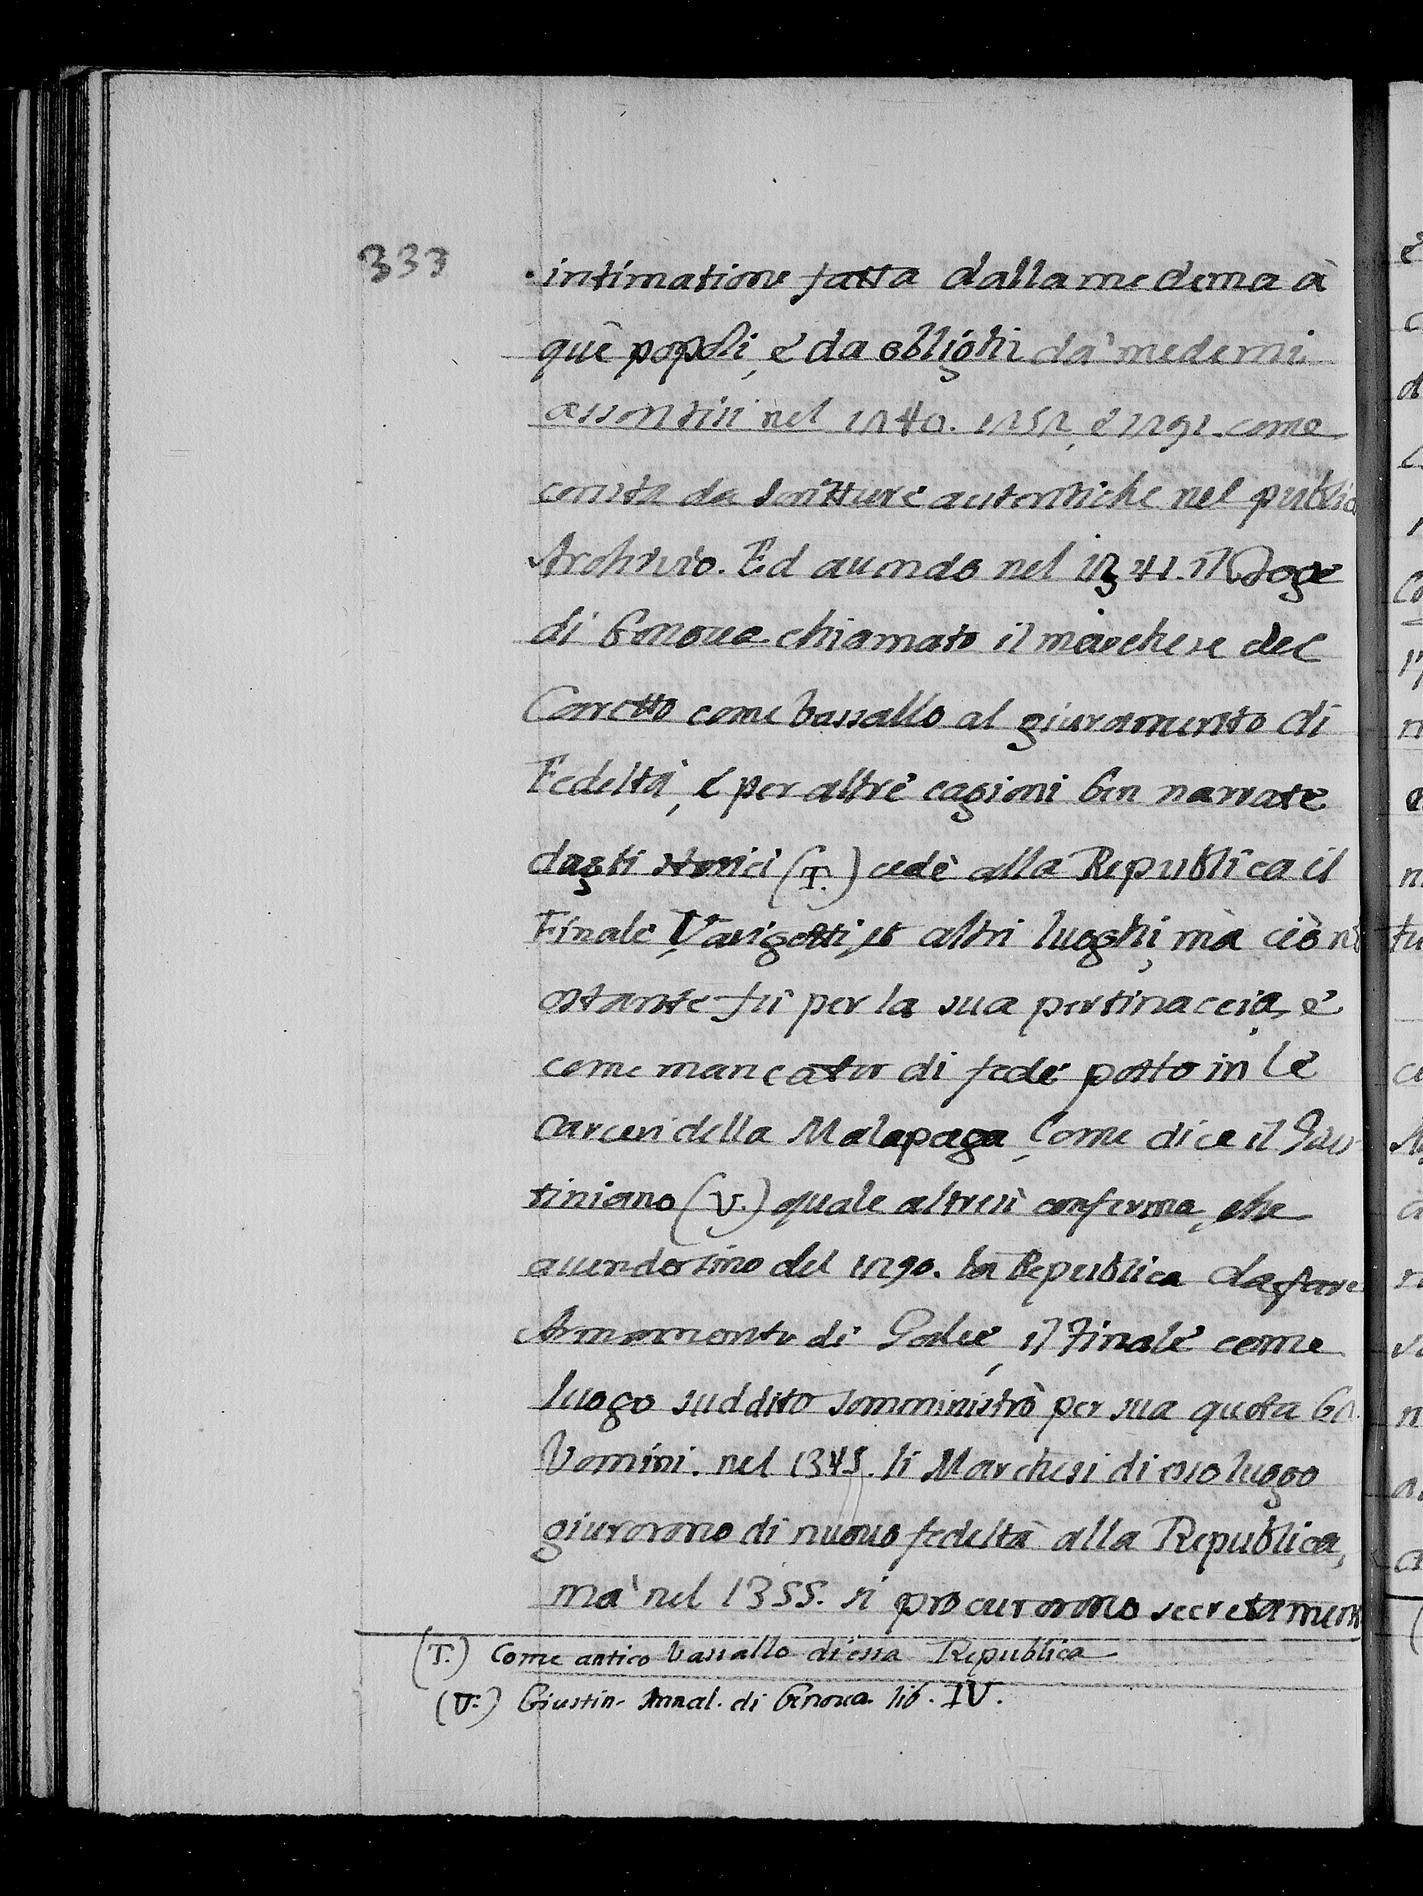 333
intimatione fatta dalla medema à
què popoli, è da oblighi da' medemi
assontisi nel 1240. 1252, è 1291. come
consta da scritture autentiche nel public
Archivio. Ed auendo nel 1341. il Doge
di Genoua chiamato il marchese del
Caretto come vassallo al giuramento di
Fedeltà, è per altre cagioni ben narrate
dagli storici (T.) cedè alla Republica il
Finale, Varigotti, et altri luoghi, mà ciò nõ
ostante fù per la sua pertinaccia, è
come mancator di fede posto in le
carceri della Malapaga, Come dice il Gius-
tiniano (V.) quale altresì conferma, che
auendo sino del 1290. la Republica da fare
Armamento di Galee, il Finale come
luogo suddito somministrò per sua quota 62.
Vomini. nel 1345. li Marchesi di esso luogo
giurorono di nuouo fedeltà alla Republica,
mà nel 1355. si procurorono secretament
(T.) Come antico vassallo di essa Republica
(V.) Giustin. Annal. di Genoua lib. IV.